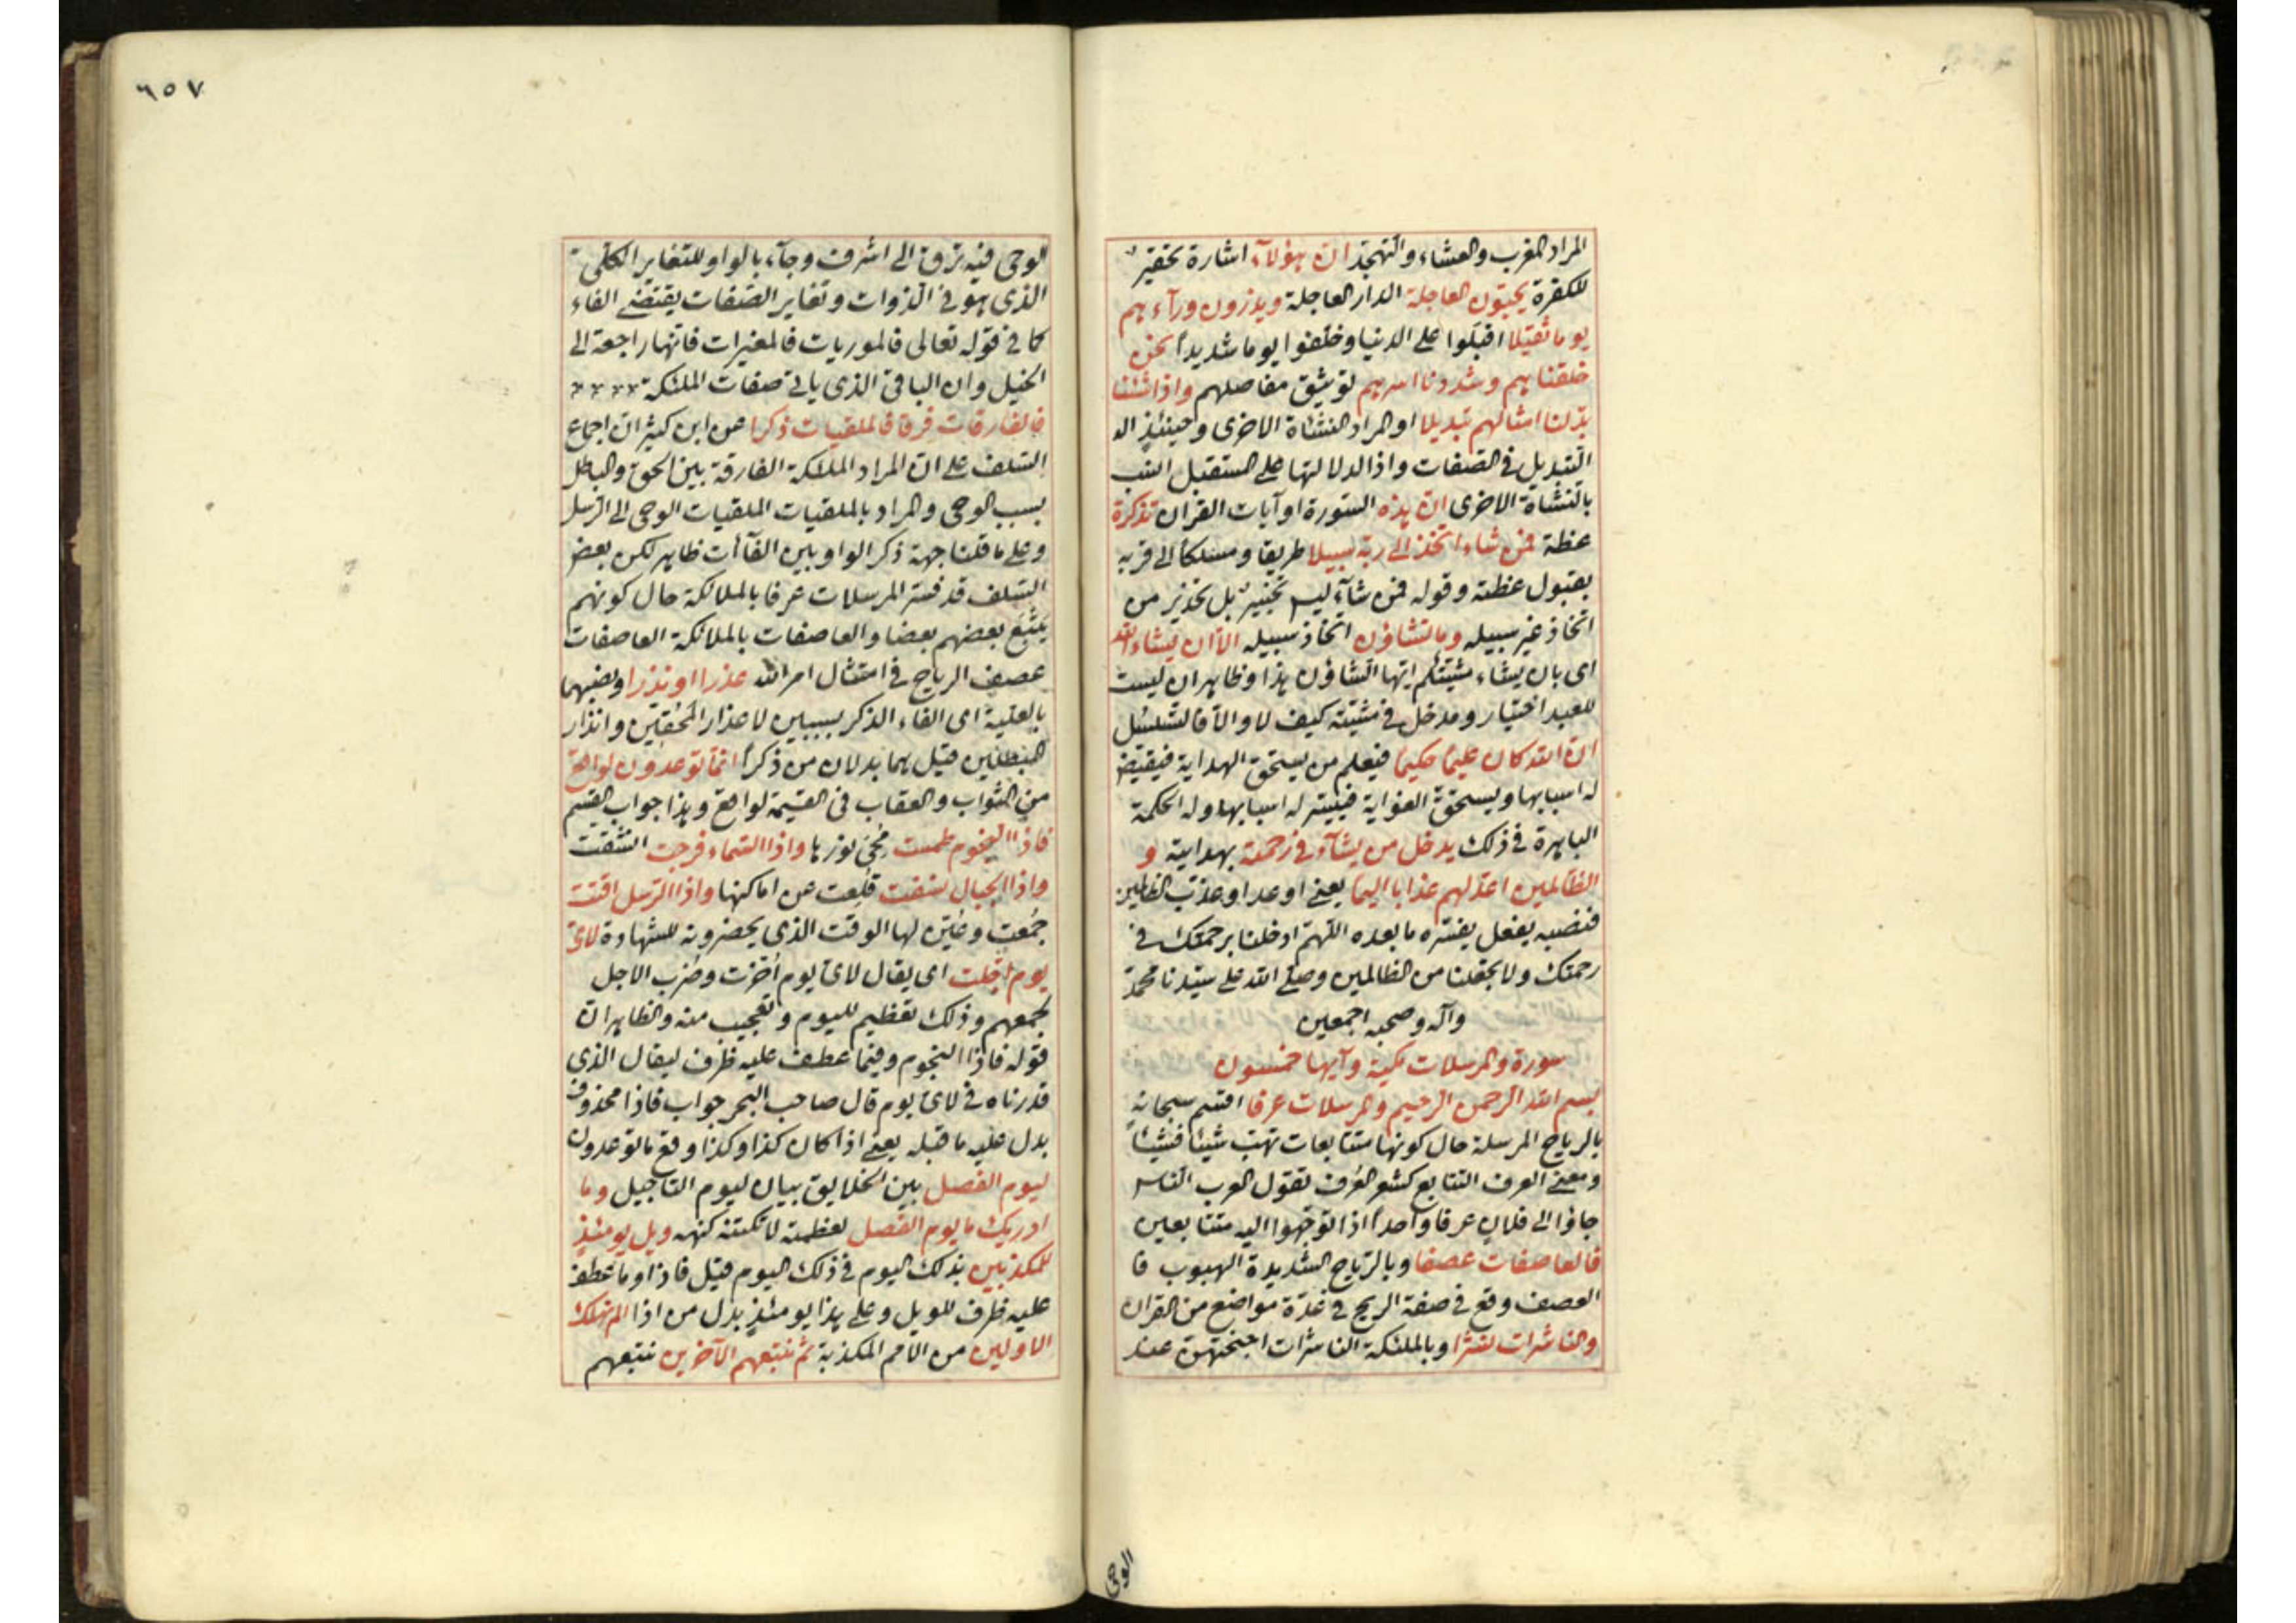 المراد المغرب والعشاء والتهجد ان هؤلآء اشارة تحقير
للكفرة يحبون العاجلة الدار العاجلة ويذرون ورآءهم
يوما ثقيلا اقبلوا على الدنيا وخلفوا يوما شديدا نحن
خلقناهم وشددنا اسرهم توثيق مفاصلهم واذا شئنا
بدلنا امثالهم تبديلا او المراد النشاة الاخرى وحينئذ
التبديل في الصفات واذا لدلالتها على المستقبل انسب
بالنشاة الاخرى ان هذه السورة او آيات القران تذكرة
عظة فمن شاء اتخذ الى ربه سبيلا طريقا ومسلكا الى قربه
بقبول عظته وقوله فمن شآء ليس تخيير بل تحذير من
اتخاذ غير سبيله وما تشاؤن اتخاذ سبيله الا ان يشاء الله
اى بان يشاء مشيتكم ايها الشاؤن هذا وظاهر ان ليست
للعبد اختيار ومدخل في مشيته كيف لا والا فالتسلسل
ان الله كان عليما حكيما فيعلم من يستحق الهداية فيقيض
له اسبابها ويستحق الغواية فييسر له اسبابها وله الحكمة
الباهرة في ذلك يدخل من يشآء في رحمته بهدايته و
الظالمين اعد لهم عذابا اليما يعنى اوعد او عذب الظالمين
فنصبه بفعل يفسره ما بعده اللهم ادخلنا برحمتك في
رحمتك ولا تجعلنا من الظالمين وصلى الله على سيدنا محمد
وآله وصحبه اجمعين
سورة والمرسلات مكية وآيها خمسون
بسم الله الرحمن الرحيم والمرسلات عرفا اقسم سبحانه
بالرياح المرسلة حال كونها متتابعات تهب شيئا فشيئا
ومعنى العرف التتابع كشعر العرف تقول العرب الناس
جاؤا الى فلان عرفا واحدا اذا توجهوا اليه متتابعين
فالعاصفات عصفا وبالرياح الشديدة الهبوب فا
العصف وقع في صفة الريح في عدة مواضع من القران
والناشرات نشرا وبالملئكة الناشرات اجنحتهن عند
الوحى
٦٥٧
الوحى فيه ترق الى اشرف وجآء بالواو للتغاير الكلى
الذى هو في الذوات وتغاير الصفات يقتضى الفاء
كما في قوله تعالى فالموريات فالمغيرات فانها راجعة الى
الخيل وان الباقى الذى ياتى صفات الملئكة
فالفارقات فرقا فالملقيات ذكرا عن ابن كثير ان اجماع
السلف على ان المراد الملائكة الفارقة بين الحق والباطل
بسبب الوحى والمراد بالملقيات الملقيات الوحى الى الرسل
وعلى ما قلنا جهة ذكر الواو بين الفاآت ظاهر لكن بعض
السلف قد فسر المرسلات عرفا بالملائكة حال كونهم
يتبع بعضهم بعضا والعاصفات بالملائكة العاصفات
عصف الرياح في امتثال امر الله عذرا او نذرا ونصبهما
بالعلية اى القاء الذكر بسببين لاعذار المحقين وانذار
المبطلين قيل هما بدلان من ذكرا انما توعدون لواقع
من الثواب والعقاب في القيمة لواقع وهذا جواب القسم
فاذا النجوم طمست محى نورها واذا السماء فرجت انشقت
واذا الجبال نسفت قلعت عن اماكنها واذا الرسل اقتت
جمعت وعين لها الوقت الذى يحضرونه للشهادة لاى
يوم اجلت اى يقال لاى يوم اخرت وضرب الاجل
لجمعهم وذلك تعظيم لليوم وتعجيب منه والظاهر ان
قوله فاذا النجوم وفيما عطف عليه ظرف ليقال الذى
قدرناه في لاى يوم قال صاحب البحر جواب فاذا محذوف
بدل عليه ما قبله يعنى اذا كان كذا وكذا وقع ما توعدون
ليوم الفصل بين الخلايق بيان ليوم التاجيل وما
ادريك ما يوم الفصل لعظمته لا تكتنه كنهه ويل يومئذ
للمكذبين بذلك اليوم في ذلك اليوم قيل فاذا وما عطف
عليه ظرف للويل وعلى هذا يومئذ بدل من اذا الم نهلك
الاولين من الامم المكذبة ثم نتبعهم الآخرين نتبعهم